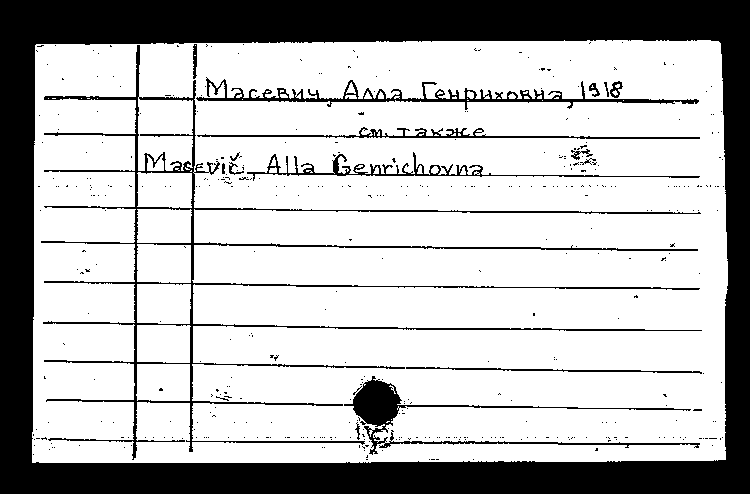 Масевич, Алла Генриховна, 1918
см. также
Masevič, Alla Genrichovna.